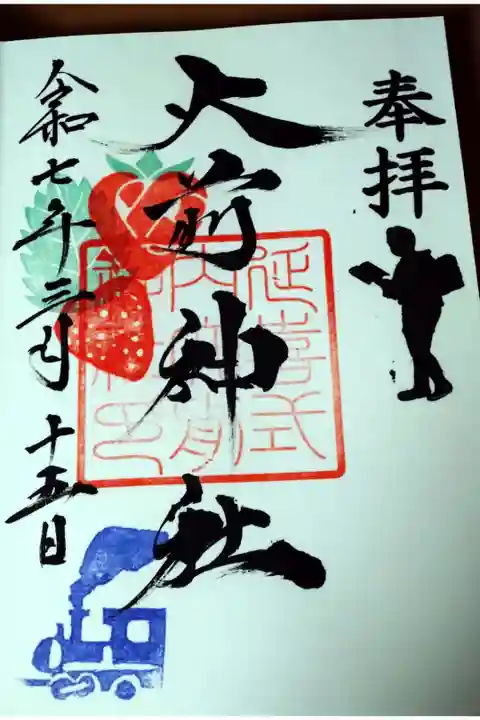 奉拝
大前神社
延喜式
内大前
神社印
令和七年三月十五日